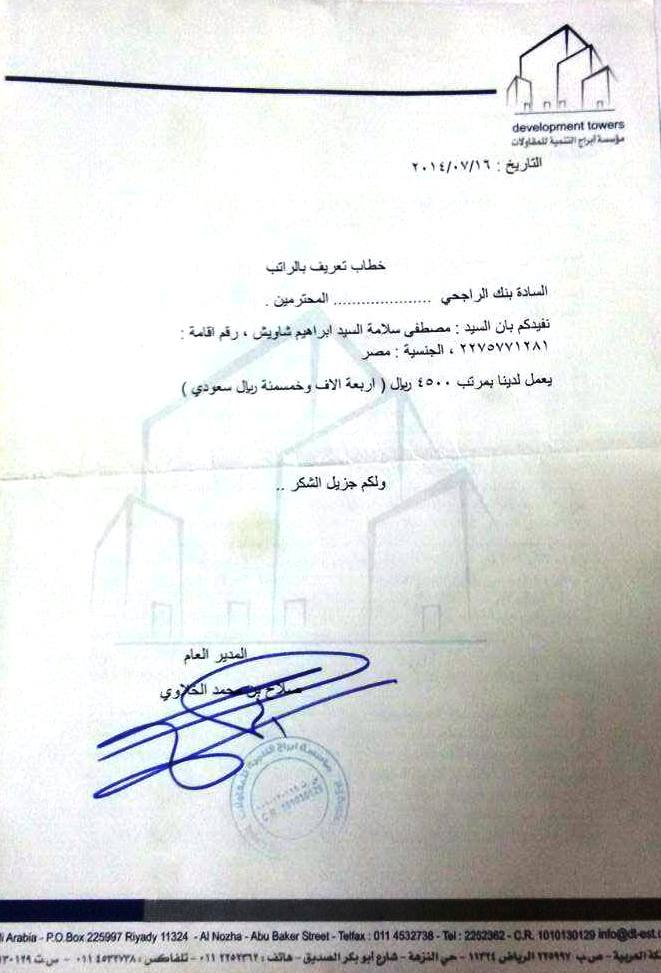 development towers
مؤسسة أبراج التنمية للمقاولات
التاريخ : ٢٠١٤/٠٧/١٦
خطاب تعريف بالراتب
السادة بنك الراجحي ..................... المحترمين .
نفيدكم بان السيد : مصطفى سلامة السيد ابراهيم شاويش ، رقم اقامة :
٢٢٧٥٧٧١٢٨١ ، الجنسية : مصر
يعمل لدينا بمرتب ٤٥٠٠ ريال ( اربعة الاف وخمسمئة ريال سعودي )
ولكم جزيل الشكر ..
المدير العام
صلاح بن محمد الخلاوي
مؤسسة ابراج التنمية للمقاولات
C.R. 1010130129
Arabia - P.O.Box 225997 Riyady 11324 - Al Nozha - Abu Baker Street - Telfax : 011 4532738 - Tel : 2252362 - C.R. 1010130129 info@dt-est.
العربية - ص ب ٢٢٥٩٩٧ الرياض ١١٣٢٤ - حي النزهة - شارع أبو بكر الصديق - هاتف : ٢٢٥٢٣٦٢ ٠١١ - تلفاكس : ٤٥٣٢٧٣٨ ٠١١ - س.ت